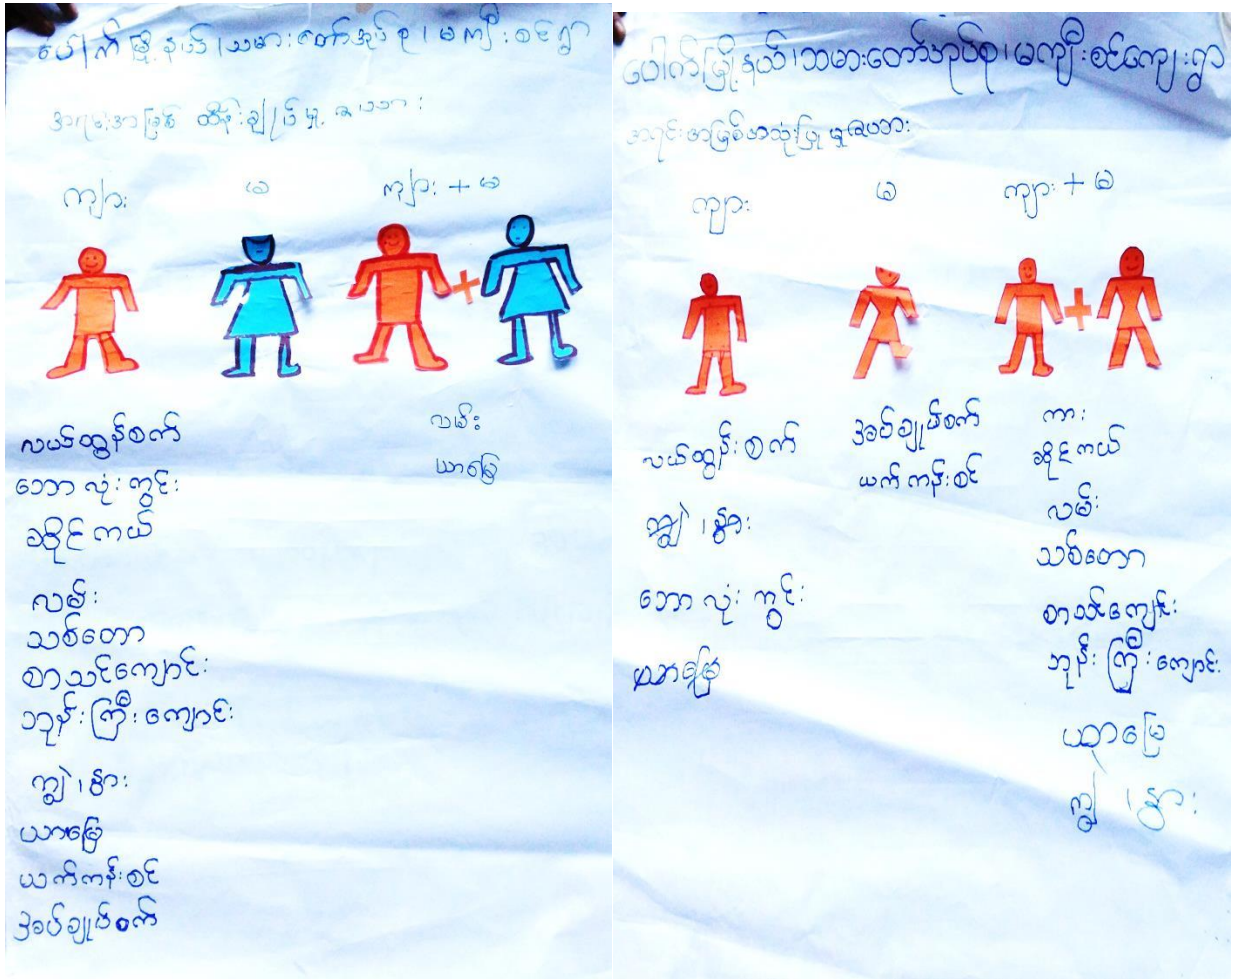 ပေါက်မြို့နယ်၊သမားတော်အုပ်စု၊မကျီးစင်ရွာ
အရင်းအမြစ် ထိန်းချုပ်မှု ဇယား
ကျား မ ကျား + မ
+
လယ်ထွန်စက်
ဘောလုံးကွင်း
ဆိုင်ကယ်
လမ်း
သစ်တော
စာသင်ကျောင်း
ဘုန်းကြီးကျောင်း
ကျွဲ ၊ နွား
ယာမြေ
ယက်ကန်းစင်
အပ်ချုပ်စက်
လမ်း
ယာမြေ
ပေါက်မြို့နယ်၊သမားတော်အုပ်စု၊မကျီးစင်ကျေးရွာ
အရင်းအမြစ်အသုံးပြုမှုဇယား
ကျား မ ကျား + မ
+
လယ်ထွန်းစက်
ကျွဲ ၊ နွား
ဘောလုံးကွင်း
ယာမြေ
အပ်ချုပ်စက်
ယက်ကန်းစင်
ကား
ဆိုင်ကယ်
လမ်း
သစ်တော
စာသင်ကျောင်း
ဘုန်းကြီးကျောင်း
ယာမြေ
ကျွဲ ၊ နွား